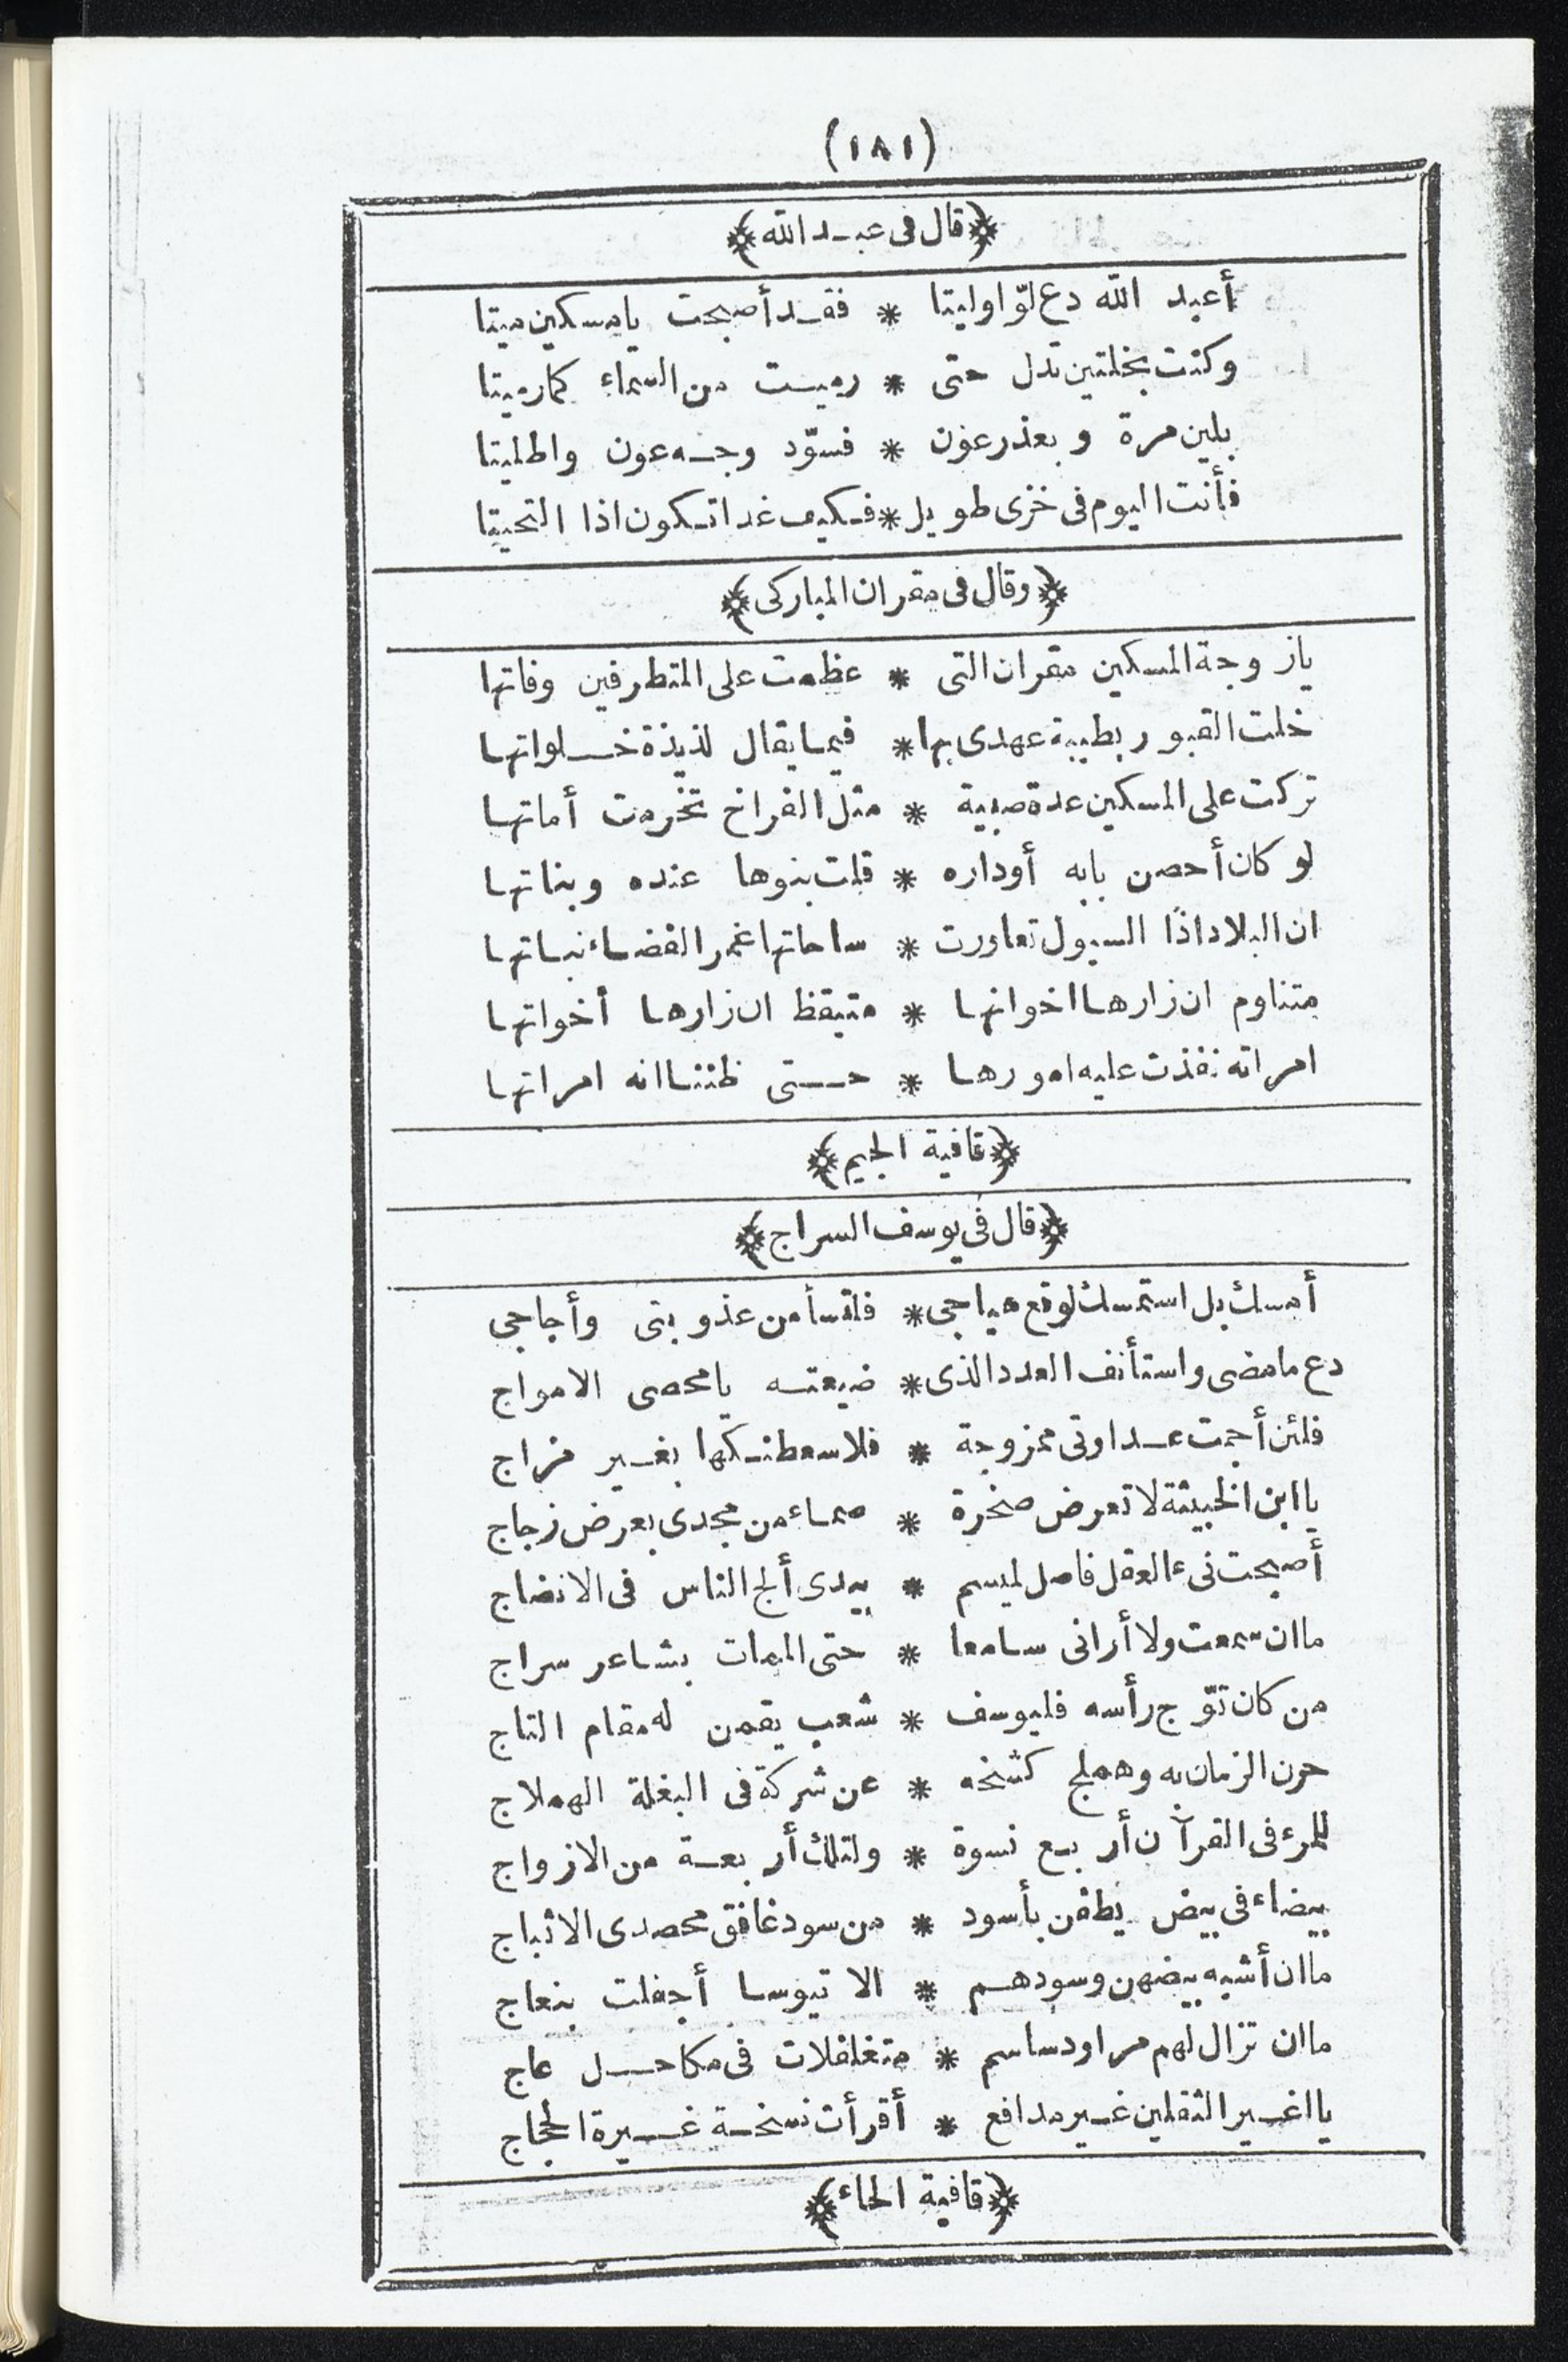 (١٨١)
﴿قال فى عبد الله﴾
أعبد الله دع لوّا وليتا * فقد أصبحت يا مسكين ميتا
وكنت بخلتين تدل حتى * رميت من السماء كما رميتا
بلين مرة وبعذر عون * فسوّد وجه عون واطليتا
فأنت اليوم فى خزى طويل * فكيف غدا تكون اذا التحيتا
﴿وقال فى مقران المباركى﴾
يا زوجة المسكين مقران التى * عظمت على المتطرفين وفاتها
خلت القبور بطيبة عهدى بها * فيما يقال لذيذة خلواتها
تركت على المسكين عدة صبية * مثل الفراخ تخرمت أماتها
لو كان أحصن بابه أوداره * قلت بنوها عنده وبناتها
ان البلاد اذا السيول تعاورت * ساحاتها غمر الفضاء نباتها
متناوم ان زارها اخوانها * متيقظ ان زارها أخواتها
امراته نفذت عليه امورها * حتى ظننا انه امراتها
﴿قافية الجيم﴾
﴿قال فى يوسف السراج﴾
أمسك بل استمسك لوقع هياجى * فلتسأمن عذوبتى وأجاجى
دع ما مضى واستأنف العدد الذى * ضيعته يا محصى الامواج
فلئن أجمت عداوتى ممزوجة * فلاسعطنكها بغير مزاج
يا ابن الخبيثة لا تعرض صخرة * صماء من مجدى بعرض زجاج
أصبحت نىء العقل فاصل لميسم * بيدى ألج الناس فى الانضاج
ما ان سمعت ولا أرانى سامعا * حتى الممات بشاعر سراج
من كان توّج رأسه فليوسف * شعب يقمن له مقام التاج
حرن الزمان به وهملج كشخه * عن شركة فى البغلة الهملاج
للمرء فى القرآن أربع نسوة * ولتلك أربعة من الازواج
بيضاء فى بيض يطفن بأسود * من سود غافق محصدى الاثباج
ما ان أشبه بيضهن وسودهم * الا تيوسا أجفلت بنعاج
ما ان تزال لهم مراود ساسم * متغلغلات فى مكاحل عاج
يا اغير الثقلين غير مدافع * أقرأت نسخة غيرة الحجاج
﴿قافية الحاء﴾